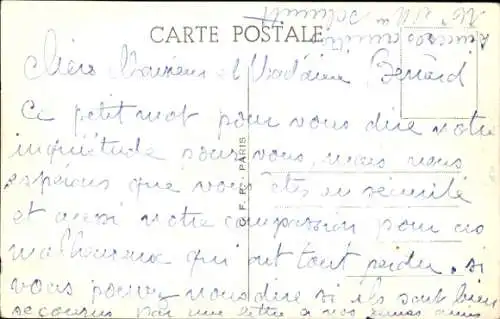 CARTE POSTALE
Chers Monsieur et Madame Bernard
Ce petit mot pour vous dire notre
inquiétude pour vous, mais nous
espérons que vous êtes en sécurité
et aussi notre compassion pour ces
malheureux qui ont tout perdu. si
vous pouvez nous dire si ils sont bien
secourus par une lettre a nos amis
sincères amitiés
Mr Mme
F. R. PARIS